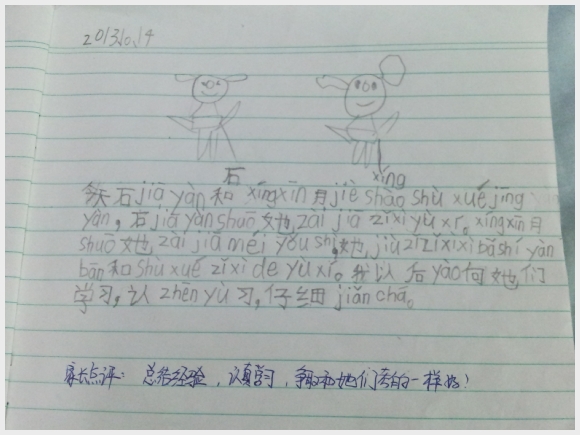 2013.10.14
石
xíng
石jiā yàn和 xíngxīn月jiè shào shù xué jīng
yàn, 石jiā yàn shuō 她 zài jiā zì xì yù xí。xíngxīn月
shuō 她 zài jiā méi yǒu shì, 她 jiù
bǎn和shù xué zǐ xì de yù xí。我以后yào向她们
学习, 认 zhēn yù 习, 仔细 jiǎn chá。
家长点评: 总结经验, 认真学习, 争取和她们考的一样好!